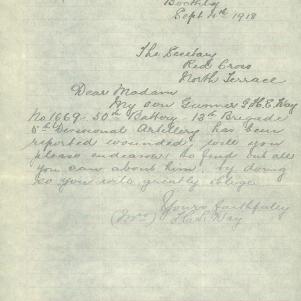 Boothby
Sept 4th 1918
The Secretary
Red Cross
North Terrace
Dear Madam
My son Gunner G.H.E. Way
No 1669. 50th Battery. 13th Brigade
5th Divisional Artillery has been
reported wounded, will you
please endeavour to find out all
you can about him, by doing
so you will greatly oblige
Yours faithfully
(Mrs) H.E. Way